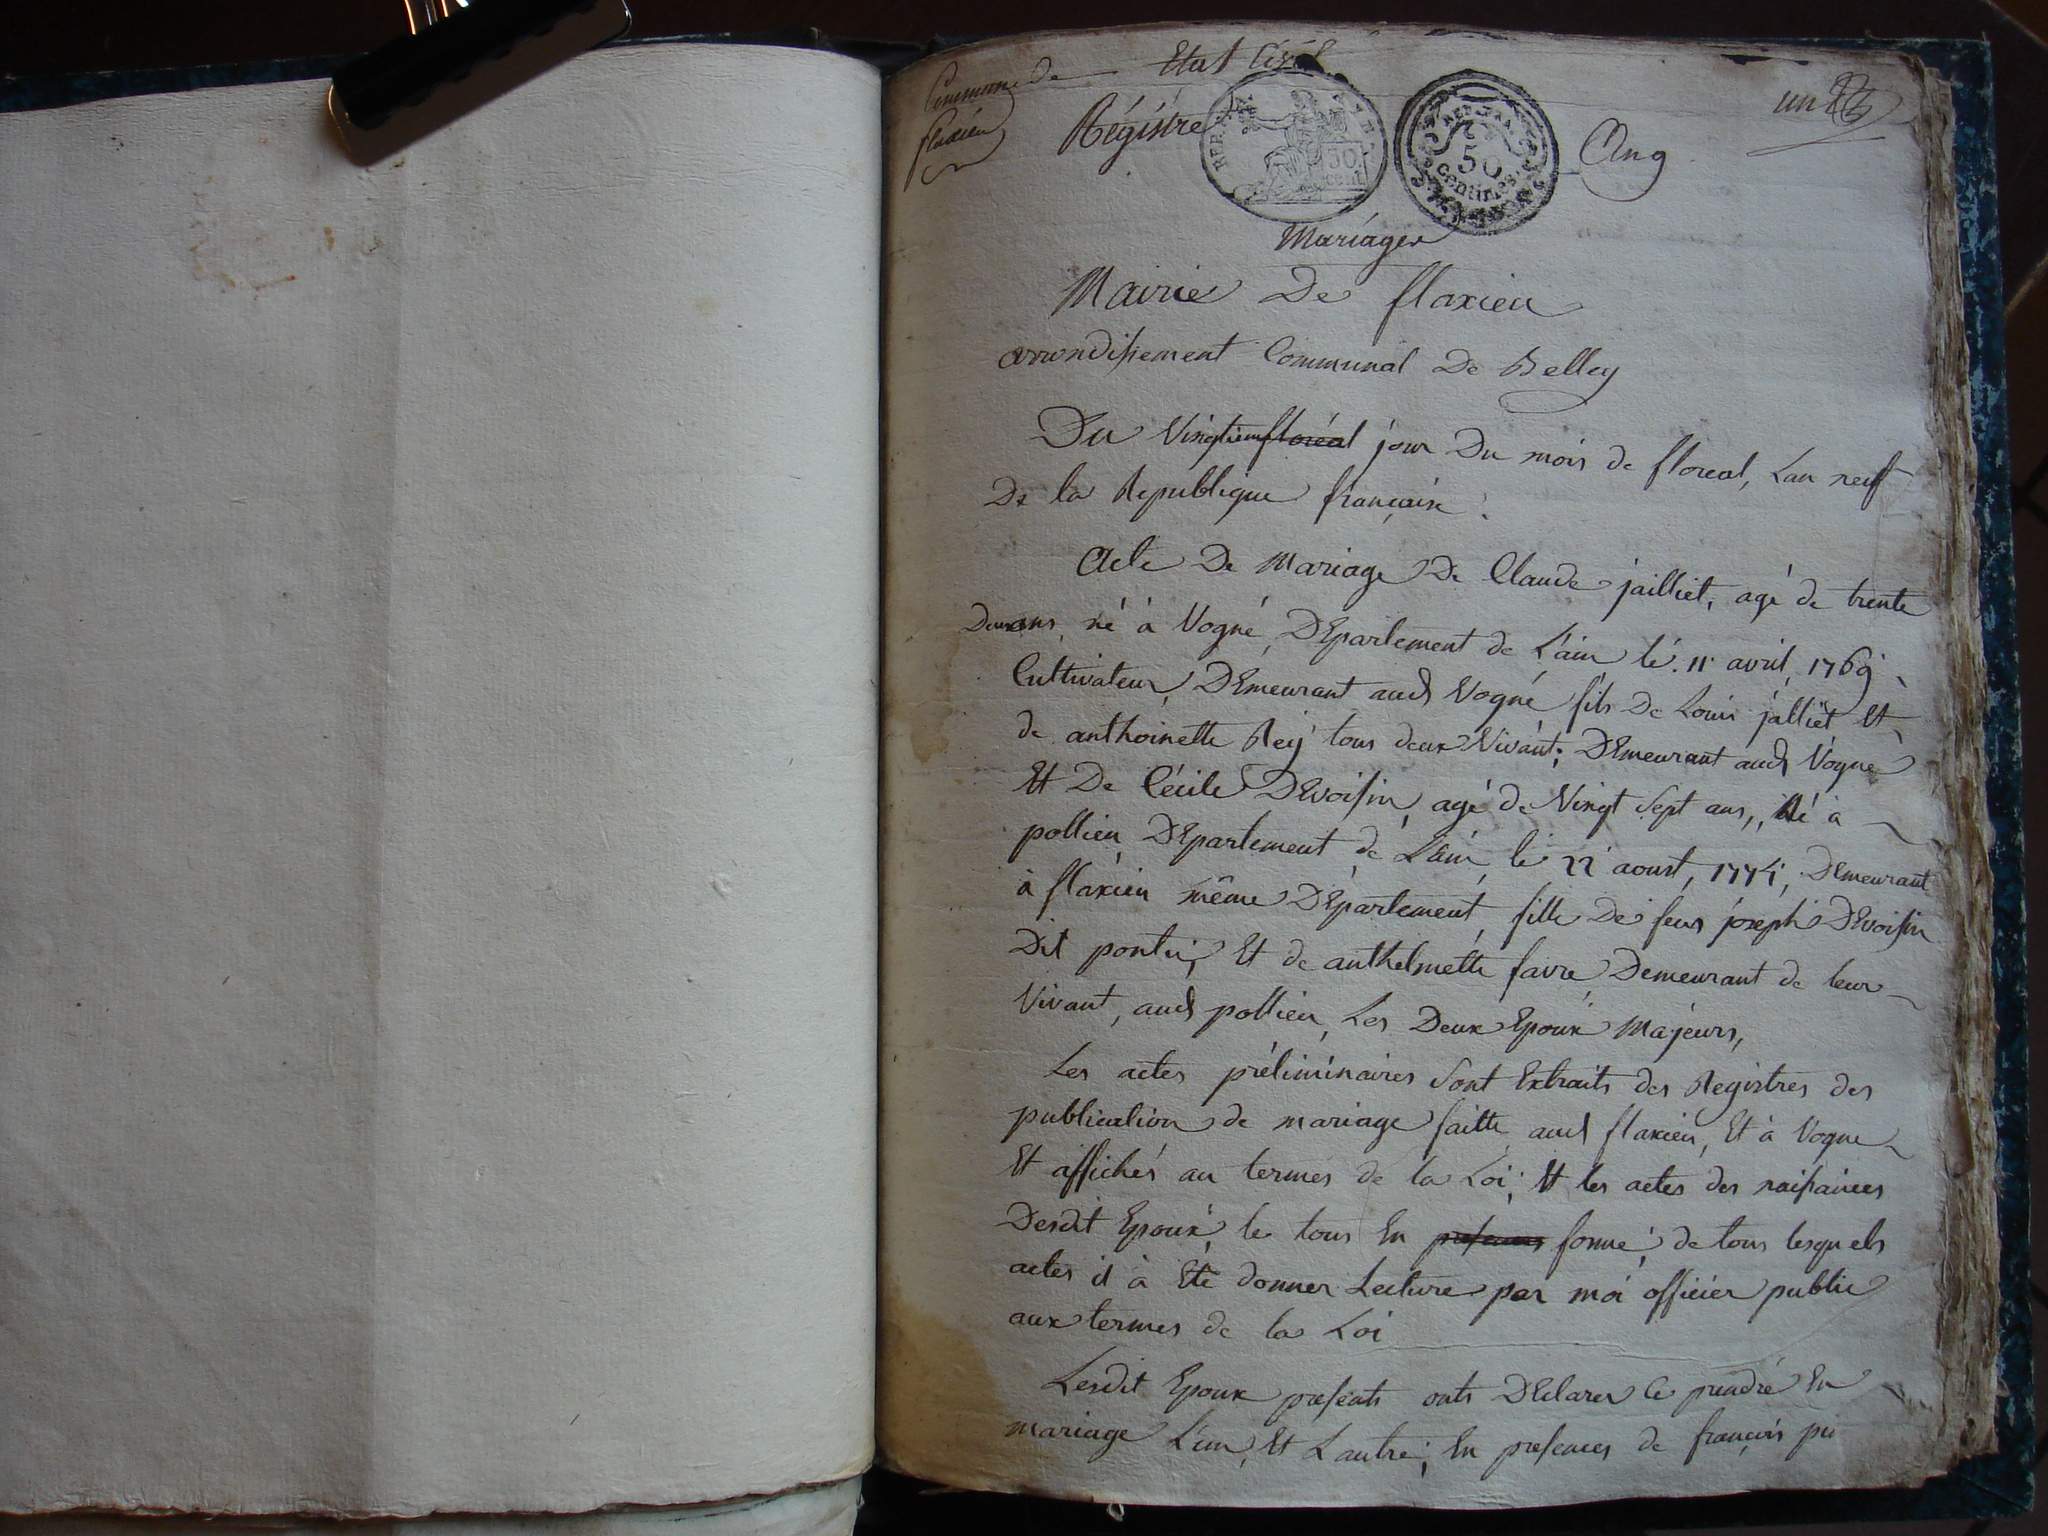 Commune De
flaxieu
Etat Civil
Régistre
REP. FRA.
50
centimes
An 9
Mariages
Mairie De flaxieu
arrondissement Communal De Belley
Du Vingtiem floréal jour Du mois de floreal, Lan neuf
De la Republique française.
Acte De Mariage De Claude jailliet, agé de trente
Deux ans, né à Vogné, DEpartement de L'ain le 11 avril, 1769,
Cultivateur, DEmeurant aud Vogné fils De Louis jalliet Et
de anthoinette Rey tous deux Vivant; DEmeurant aud Vogné
Et De Cécile DEvoisin, agé de Vingt sept ans,, Né à
pollieu DEpartement de L'ain, le 22 aoust, 1774, DEmeurant
à flaxieu même DEpartement, fille De feus joseph DEvoisin
Dit, Et de anthelmette favre, Demeurant de leur
Vivant, aud pollieu, Les Deux Epoux Majeurs,
Les actes préliminaires sont Extraits des Registres des
publication de mariage faitte aud flaxieu, Et à Vogne
Et affichés au termes de la Loi; Et les actes des naissances
Desdit Epoux, le tous En presences forme, de tous lesquels
actes il à Eté donner Lecture par moi officier public
aux termes de la Loi
Lesdit Epoux presents onts DEclarer Ce prendre En
mariage L'un, Et L'autre; En presences de françois